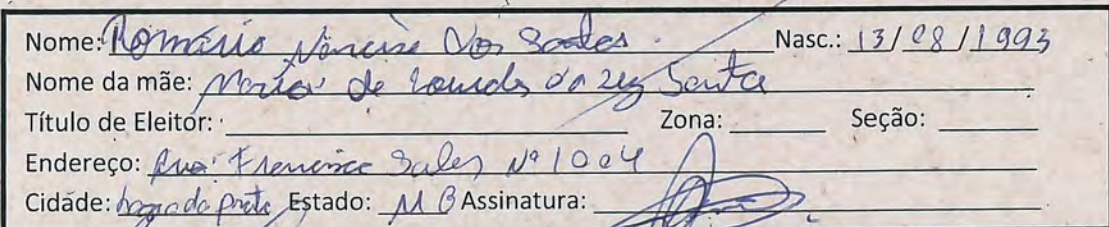 Nome: Romário Vinicius Dos Santos Nasc.: 13/08/1993
Nome da mãe: Maria de Lourdes da Luz Santa
Título de Eleitor: Zona: Seção:
Endereço: Rua: Francisco Sales Nº 1004
Cidade: Lagoa da prata Estado: MG Assinatura: